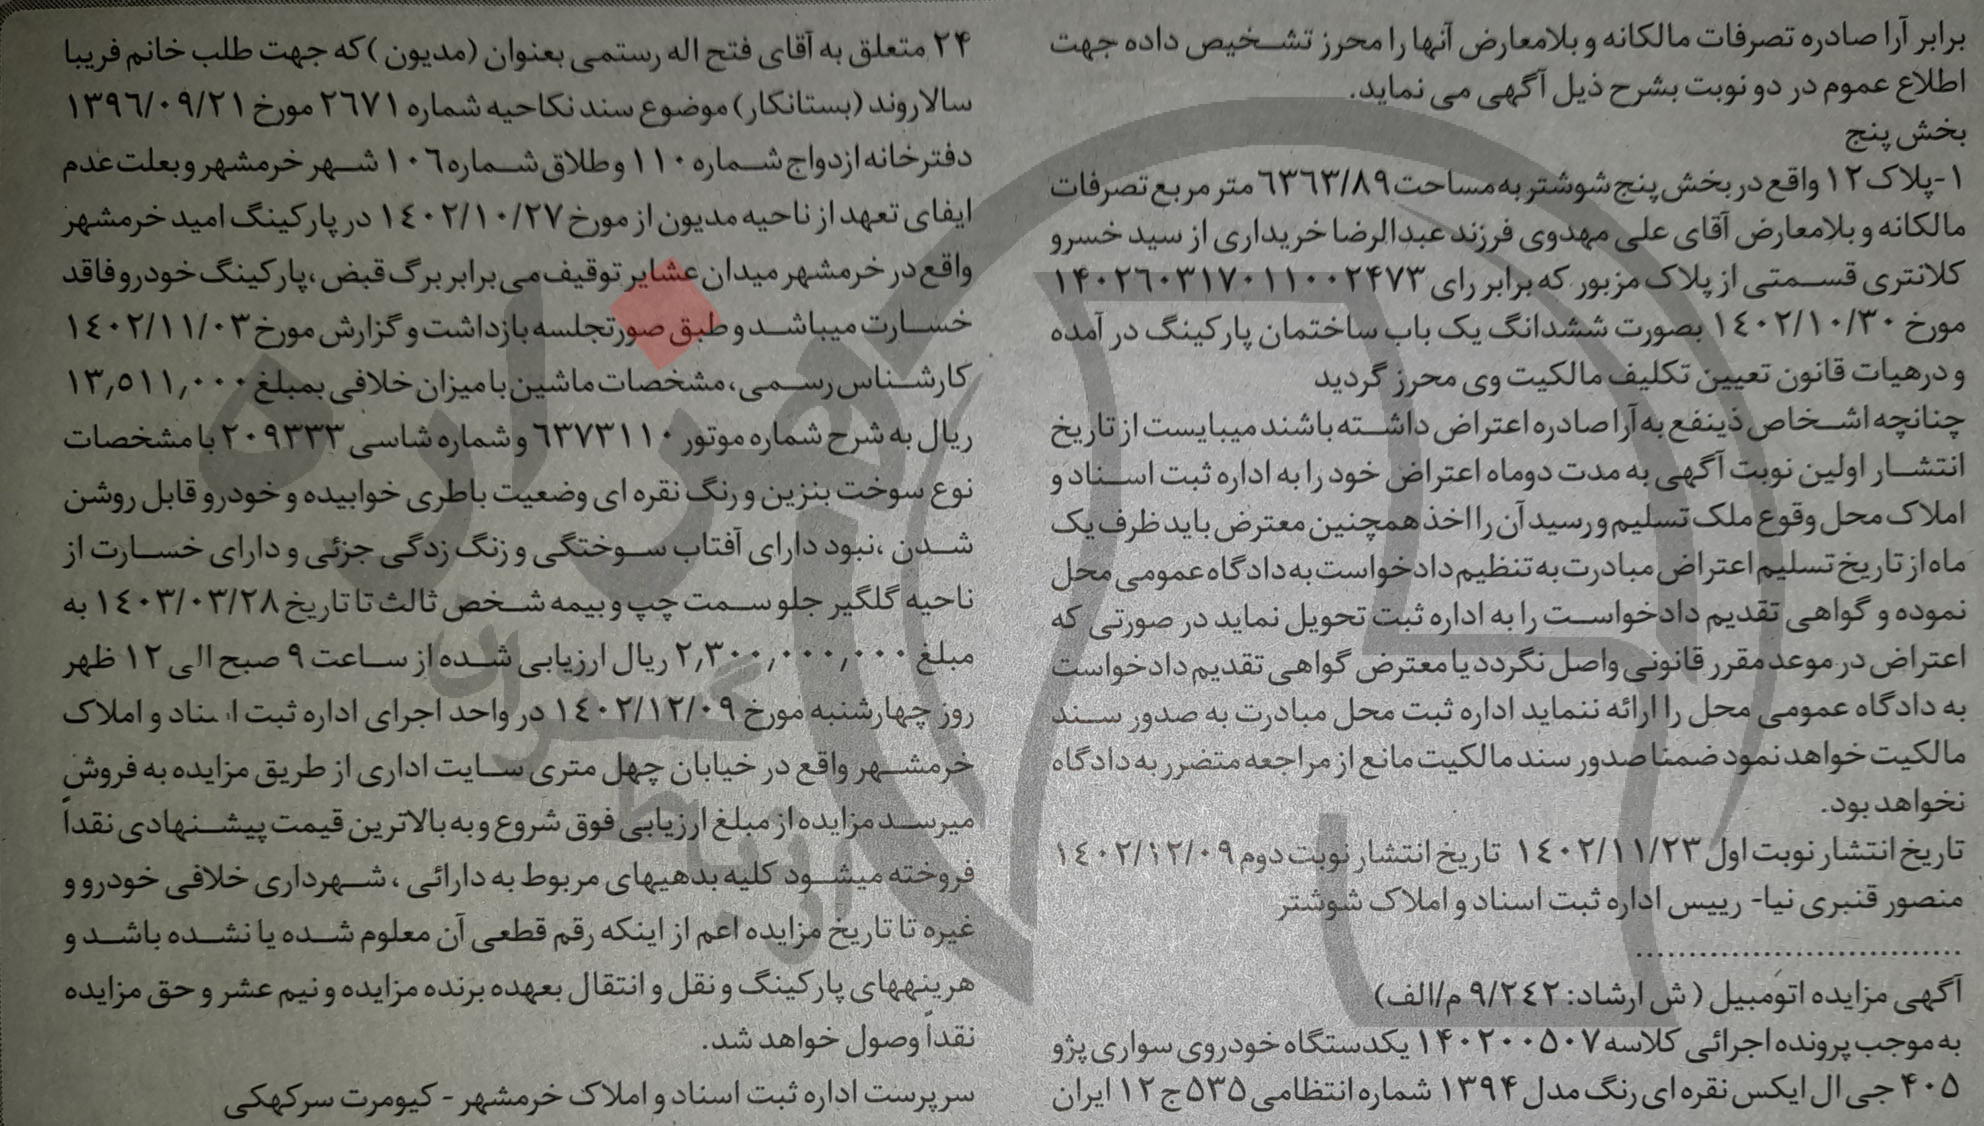 برابر آرا صادره تصرفات مالکانه و بلامعارض آنها را محرز تشخیص داده جهت
اطلاع عموم در دو نوبت بشرح ذیل آگهی می نماید.
بخش پنج
۱-پلاک ۱۲ واقع در بخش پنج شوشتر به مساحت ۶۳۶۳/۸۹ متر مربع تصرفات
مالکانه و بلامعارض آقای علی مهدوی فرزند عبدالرضا خریداری از سید خسرو
کلانتری قسمتی از پلاک مزبور که برابر رای ۱۴۰۲۶۰۳۱۷۰۱۱۰۰۲۴۷۳
مورخ ۱۴۰۲/۱۰/۳۰ بصورت ششدانگ یک باب ساختمان پارکینگ در آمده
و درهیات قانون تعیین تکلیف مالکیت وی محرز گردید
چنانچه اشخاص ذینفع به آرا صادره اعتراض داشته باشند میبایست از تاریخ
انتشار اولین نوبت آگهی به مدت دوماه اعتراض خود را به اداره ثبت اسناد و
املاک محل وقوع ملک تسلیم و رسید آن را اخذ همچنین معترض باید ظرف یک
ماه از تاریخ تسلیم اعتراض مبادرت به تنظیم دادخواست به دادگاه عمومی محل
نموده و گواهی تقدیم دادخواست را به اداره ثبت تحویل نماید در صورتی که
اعتراض در موعد مقرر قانونی واصل نگردد یا معترض گواهی تقدیم دادخواست
به دادگاه عمومی محل را ارائه ننماید اداره ثبت محل مبادرت به صدور سند
مالکیت خواهد نمود ضمنا صدور سند مالکیت مانع از مراجعه متضرر به دادگاه
نخواهد بود.
تاریخ انتشار نوبت اول ۱۴۰۲/۱۱/۲۳ تاریخ انتشار نوبت دوم ۱۴۰۲/۱۲/۰۹
منصور قنبری نیا- رییس اداره ثبت اسناد و املاک شوشتر
..............................
آگهی مزایده اتومبیل ( ش ارشاد: ۹/۲۴۲ م/الف)
به موجب پرونده اجرائی کلاسه ۱۴۰۲۰۰۵۰۷ یکدستگاه خودروی سواری پژو
۴۰۵ جی ال ایکس نقره ای رنگ مدل ۱۳۹۴ شماره انتظامی ۵۳۵ج۱۲ ایران
۲۴ متعلق به آقای فتح اله رستمی بعنوان (مدیون )که جهت طلب خانم فریبا
سالاروند (بستانکار) موضوع سند نکاحیه شماره ۲۶۷۱ مورخ ۱۳۹۶/۰۹/۲۱
دفترخانه ازدواج شماره ۱۱۰ و طلاق شماره ۱۰۶ شهر خرمشهر و بعلت عدم
ایفای تعهد از ناحیه مدیون از مورخ ۱۴۰۲/۱۰/۲۷ در پارکینگ امید خرمشهر
واقع در خرمشهر میدان عشایر توقیف می برابر برگ قبض ،پارکینگ خودرو فاقد
خسارت میباشد و طبق صورتجلسه بازداشت و گزارش مورخ ۱۴۰۲/۱۱/۰۳
کارشناس رسمی، مشخصات ماشین با میزان خلافی بمبلغ ۱۳,۵۱۱,۰۰۰
ریال به شرح شماره موتور ۶۳۷۳۱۱۰ و شماره شاسی ۲۰۹۳۳۳ با مشخصات
نوع سوخت بنزین و رنگ نقره ای وضعیت باطری خوابیده و خودرو قابل روشن
شدن ،نبود دارای آفتاب سوختگی و زنگ زدگی جزئی و دارای خسارت از
ناحیه گلگیر جلو سمت چپ و بیمه شخص ثالث تا تاریخ ۱۴۰۳/۰۳/۲۸ به
مبلغ ۲,۳۰۰,۰۰۰,۰۰۰ ریال ارزیابی شده از ساعت ۹ صبح الی ۱۲ ظهر
روز چهارشنبه مورخ ۱۴۰۲/۱۲/۰۹ در واحد اجرای اداره ثبت اسناد و املاک
خرمشهر واقع در خیابان چهل متری سایت اداری از طریق مزایده به فروش
میرسد مزایده از مبلغ ارزیابی فوق شروع و به بالاترین قیمت پیشنهادی نقداً
فروخته میشود کلیه بدهیهای مربوط به دارائی ، شهرداری خلافی خودرو و
غیره تا تاریخ مزایده اعم از اینکه رقم قطعی آن معلوم شده یا نشده باشد و
هرینههای پارکینگ و نقل و انتقال بعهده برنده مزایده و نیم عشر و حق مزایده
نقداً وصول خواهد شد.
سرپرست اداره ثبت اسناد و املاک خرمشهر - کیومرث سرکهکی